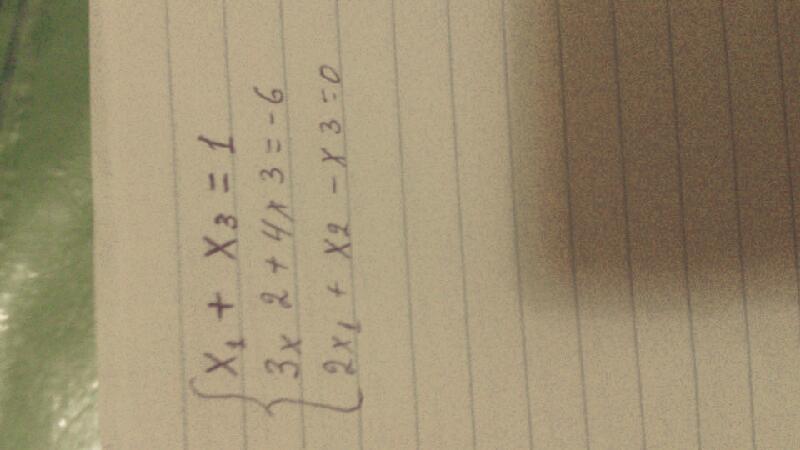 x₁ + x₃ = 1
3x2 + 4x3 = -6
2x₁ + x2 - x3 = 0